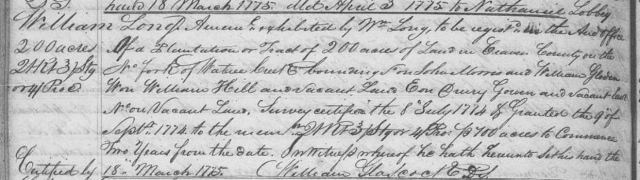 hand 18 March 1775 ded April 3 1775 to Nathaniel Lobby
William Long's Amem.e exhibited by Wm Long, to be regist.d in the Aud. Office
200 acres Of a Plantation or Tract of 200 acres of Land in Craven County on the
No. fork of Wateree Creek bounding S on John Morris and William
or 4 Proc W on William Hill and vacant Land E on Drury Gowen and vacant land
N on Vacant Land. Survey certified the 8th July 1774 & Granted the 9th of
Sept.r 1774 to the mem.st 3/ stg or 4/ Pro. p 100 acres to Commence
Two Years from the date. In witness whereof he hath hereunto set his hand the
Certified by 18th March 1775 William Glascock D.S.